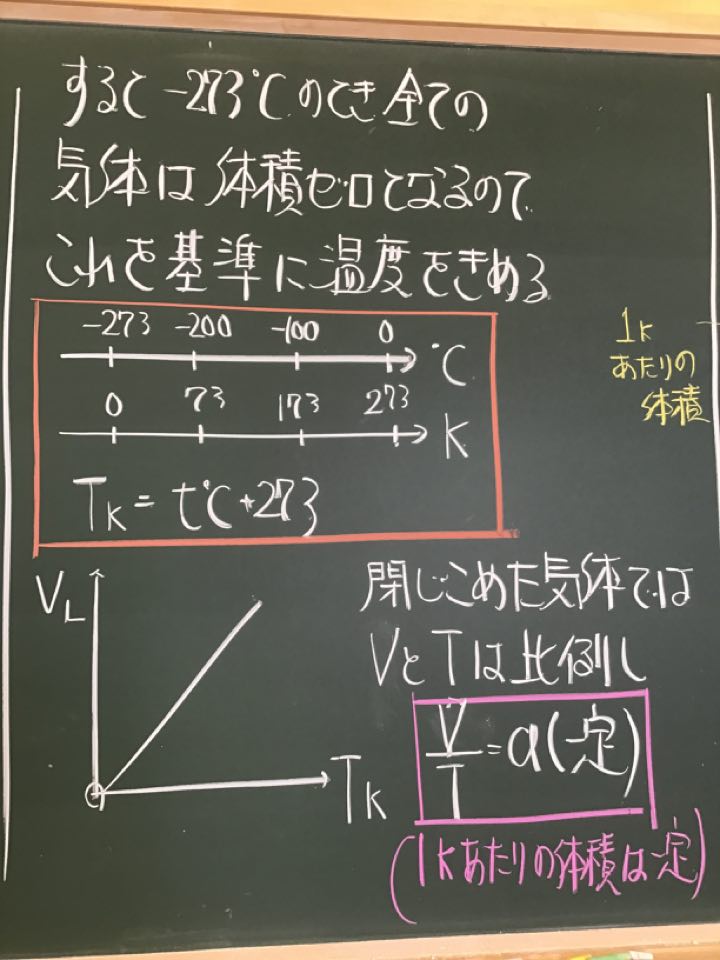 すると-273℃のとき全ての
気体は体積ゼロとなるので
これを基準に温度をきめる
-273 -200 -100 0 ℃
0 73 173 273 K
TK = t℃+273
1K
あたりの
体積
VL
TK
閉じこめた気体では
VとTは比例し
V/T = a(一定)
(1Kあたりの体積は一定)